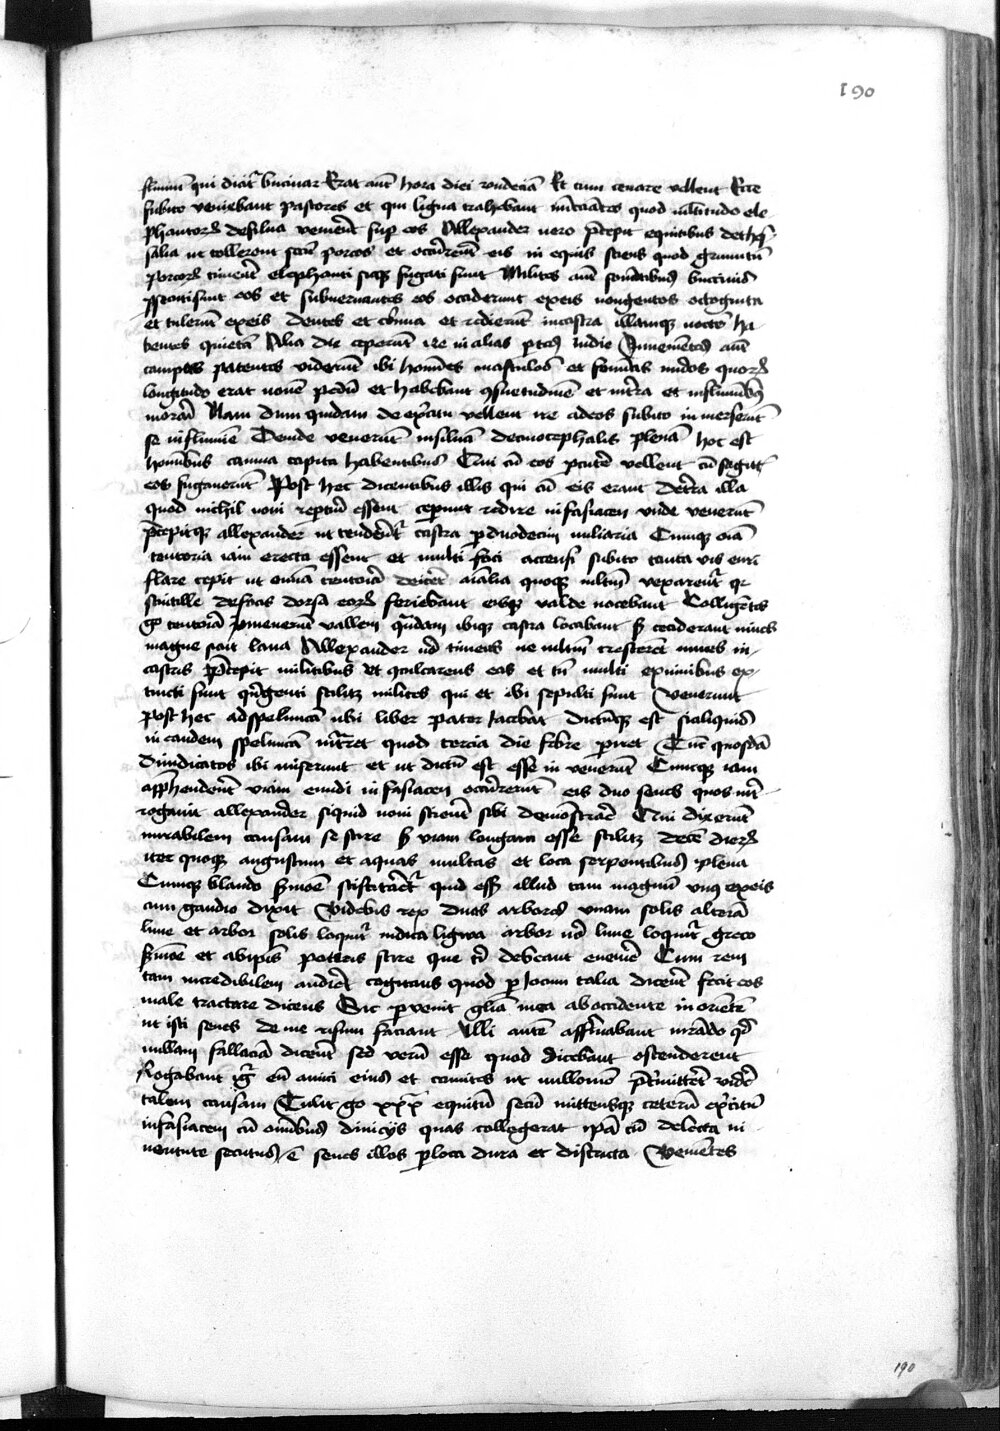 190
flumen qui dicit᷑ bucinar Erat aut̄ hora diei vndeciā Et cum cenare vellent Ecce
subito veniebant pastores et qui ligna trahebant nūciātes quod multitudo ele-
phantorꝝ de silua venieȓt sup eos Allexander uero p̄cepit equitibus de thes-
salia ut tollerent secū porcos et occurrereȓt eis in equis sciens quod grunnitū
porcorꝝ timereȓt elephanti sicqꝫ fugati sunt Milites aut̄ sonātibus buccinis
ꝑsecuti sunt eos et subneruantes eos occiderunt ex eis nongentos octoginta
et tulerūt ex eis dentes et cornua et redierūt in castra illamqꝫ noctē ha-
bentes quietā Alia die ceperūt ire in alias ꝑtes indie Inuenientes aut̄
campos patentes viderūt ibi homīes masculos et feminas nudos quorꝝ
longitudo erat nouē pedū et habebant ꝯsuetudinē et in terra et in fluminibꝫ
morari Nam dum quidam de exercitu vellent ire ad eos subito in merserūt
se in flumīe Deinde venerūt in siluā decinocephalis plenā hoc est
hominibus canina capita habentibus Qui cū eos ꝑcutere vellent cū sagittis
eos fugauerūt Post hec dicentibus illis qui cū eis erant de terra illa
quod nichil noui reptur̄ essent ceperunt redire in fasiacen vnde venerūt
p̄cepitqꝫ allexander ut tenderent᷑ castra ꝑ duodecim miliaria Cumqꝫ oīa
tentoria iam erecta essent et multi foci accensi subito tanta vis euri
flare cepit ut omīa tentoria deiceret aīalia quoqꝫ multum vexarent᷑ qꝛ
scintille de focis dorsa eorꝝ feriebant eisqꝫ valde nocebant Colligentes
g͛ tentoria inuenerūt vallem quādam ibiqꝫ castra locabant sꝫ ceciderant niues
magne sicut lana Allexander u͛o timens ne multum cresceret niues in
castris p̄cepit militibus ut ꝯculcarent eas et tū multi ex nimibus ex-
tincti sunt qn̄genti scilicꝫ milites qui et ibi sepulti sunt Venerunt
post hec ad speluncā ubi liber pater iacebat dictumqꝫ est si aliquis
in eandem speluncā intraret quod tercia die febre periret Tūc quosdā
diiudicatos ibi miserunt et ut dictū est esse in venerūt Cumqꝫ iam
app̄hendereȓt viam eundi in fasiacen occurrerūt eis duo senes quos inter-
rogauit allexander si quid noui scireȓt sibi demonstrare Qui dixerūt
mirabilem causam se scire sꝫ viam longam esse scilicꝫ decē dierꝝ
iter quoqꝫ angustum et aquas multas et loca serpentibus plena
Cumqꝫ blando sermone sciscitaret᷑ quid esset illud tam magnū vnus ex eis
cum gaudio dixit Videbis rex duas arbores vnam solis alterā
lune et arbor solis loquit᷑ indica ligwa arbor u͛o lune loquit᷑ greco
sermone et ab ipis poteris scire que t͛ debeant euenire Cum rem
tam incredibilem audiret cogitans quod ꝑ iocum talia diceret fecit eos
male tractare dicens Sic ꝑvenit gl̄ia mea ab occidente in oriētē
ut isti senes de me risum faciant Illi autē affirmabant iurādo qd̄
nullam fallaciā dicereȓt sed verū esse quod dicebant ostenderent
Rogabant g͛ eū amici eius et comites ut nullomō p̄termitteret videre
talem causam Tulit g͛o xxx equitū secū mittensqꝫ ceterū exercitū
in fasiacen cū omnibus diuicijs quas collegerat ip̄a cū delecta iu-
uentute secutus ē senes illos ꝑ loca dura et districta Venientes
190